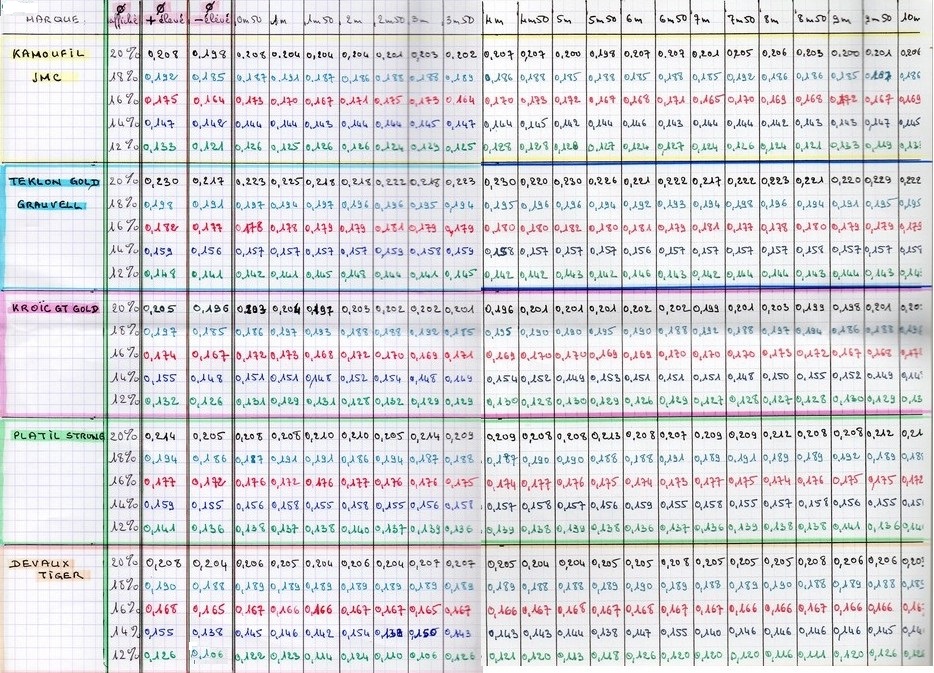 MARQUE Ø affiché Ø + élevé Ø - élevé 0m50 1m 1m50 2m 2m50 3m 3m50 4m 4m50 5m 5m50 6m 6m50 7m 7m50 8m 8m50 9m 9m50 10m
KAMOUFIL 20% 0,208 0,198 0,208 0,204 0,204 0,204 0,201 0,203 0,202 0,207 0,207 0,200 0,198 0,207 0,207 0,201 0,205 0,206 0,203 0,200 0,201
JMC 18% 0,192 0,185 0,187 0,191 0,187 0,186 0,188 0,188 0,189 0,186 0,188 0,185 0,188 0,188 0,188 0,185 0,192 0,186 0,186 0,185 0,187 0,186
16% 0,175 0,164 0,173 0,170 0,167 0,171 0,175 0,173 0,164 0,170 0,173 0,172 0,167 0,168 0,171 0,165 0,170 0,169 0,168 0,172 0,167 0,169
14% 0,147 0,142 0,144 0,144 0,143 0,144 0,144 0,145 0,147 0,144 0,145 0,142 0,144 0,146 0,143 0,144 0,144 0,142 0,143 0,143 0,147 0,145
12% 0,133 0,121 0,126 0,125 0,126 0,126 0,124 0,129 0,125 0,128 0,128 0,128 0,127 0,124 0,127 0,124 0,126 0,124 0,121 0,133 0,129
TEKLON GOLD 20% 0,230 0,217 0,223 0,225 0,218 0,218 0,222 0,218 0,223 0,230 0,220 0,230 0,226 0,221 0,222 0,217 0,222 0,223 0,221 0,220 0,229 0,222
GRAUVELL 18% 0,198 0,191 0,197 0,194 0,197 0,196 0,196 0,195 0,194 0,195 0,196 0,196 0,194 0,192 0,193 0,194 0,198 0,196 0,194 0,191 0,195 0,195
16% 0,182 0,177 0,178 0,178 0,179 0,179 0,181 0,179 0,179 0,180 0,180 0,182 0,180 0,181 0,179 0,181 0,177 0,178 0,180 0,179 0,179
14% 0,159 0,156 0,157 0,157 0,157 0,157 0,159 0,158 0,159 0,158 0,157 0,157 0,157 0,156 0,157 0,157 0,156 0,157 0,157 0,158 0,157 0,157
12% 0,148 0,141 0,142 0,141 0,145 0,148 0,144 0,141 0,145 0,142 0,142 0,143 0,142 0,146 0,143 0,142 0,144 0,144 0,143 0,144 0,143
KROÏC GT GOLD 20% 0,205 0,196 0,203 0,204 0,197 0,203 0,202 0,202 0,201 0,196 0,201 0,201 0,201 0,202 0,202 0,199 0,201 0,203 0,199 0,198 0,201
18% 0,197 0,185 0,186 0,197 0,193 0,188 0,188 0,192 0,185 0,195 0,190 0,190 0,195 0,190 0,188 0,192 0,188 0,197 0,194 0,186 0,188
16% 0,174 0,167 0,172 0,173 0,168 0,172 0,170 0,169 0,171 0,169 0,170 0,170 0,169 0,169 0,170 0,170 0,170 0,173 0,172 0,167 0,168
14% 0,155 0,148 0,151 0,151 0,148 0,152 0,154 0,148 0,149 0,154 0,152 0,149 0,153 0,151 0,151 0,151 0,148 0,150 0,155 0,152 0,149
12% 0,132 0,126 0,131 0,129 0,131 0,128 0,132 0,129 0,126 0,130 0,128 0,130 0,129 0,126 0,129 0,127 0,128 0,127 0,128 0,130 0,129
PLATIL STRONG 20% 0,214 0,205 0,208 0,208 0,210 0,210 0,205 0,214 0,209 0,209 0,208 0,208 0,213 0,208 0,207 0,209 0,209 0,212 0,208 0,208 0,212
18% 0,194 0,186 0,187 0,191 0,191 0,186 0,194 0,187 0,188 0,187 0,190 0,190 0,188 0,188 0,191 0,189 0,191 0,188 0,189 0,192 0,189
16% 0,177 0,172 0,176 0,172 0,176 0,177 0,176 0,176 0,175 0,174 0,177 0,176 0,175 0,174 0,173 0,177 0,175 0,174 0,176 0,175 0,175 0,172
14% 0,159 0,155 0,156 0,158 0,155 0,158 0,155 0,156 0,158 0,157 0,158 0,157 0,156 0,158 0,155 0,156 0,158 0,157 0,158 0,156 0,155
12% 0,141 0,136 0,138 0,137 0,138 0,140 0,137 0,139 0,136 0,139 0,138 0,139 0,138 0,136 0,137 0,136 0,139 0,138 0,138 0,141 0,136
DEVAUX 20% 0,208 0,204 0,206 0,205 0,204 0,206 0,204 0,207 0,207 0,205 0,204 0,204 0,205 0,205 0,208 0,205 0,205 0,205 0,208 0,206 0,206
TIGER 18% 0,190 0,188 0,189 0,189 0,189 0,189 0,189 0,189 0,189 0,189 0,188 0,188 0,189 0,190 0,188 0,189 0,189 0,190 0,188 0,189 0,188
16% 0,168 0,165 0,167 0,166 0,166 0,167 0,167 0,165 0,167 0,166 0,167 0,168 0,167 0,168 0,167 0,166 0,166 0,166 0,167 0,166 0,166
14% 0,155 0,138 0,145 0,146 0,142 0,154 0,138 0,150 0,143 0,143 0,143 0,144 0,138 0,147 0,155 0,140 0,146 0,146 0,146 0,146 0,145
12% 0,126 0,106 0,122 0,123 0,114 0,124 0,110 0,106 0,126 0,121 0,120 0,113 0,118 0,126 0,120 0,120 0,120 0,116 0,111 0,120 0,126